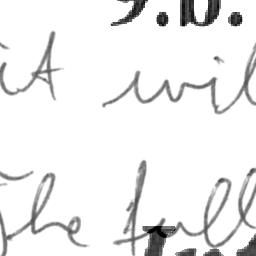 9.6.
it wil
The full